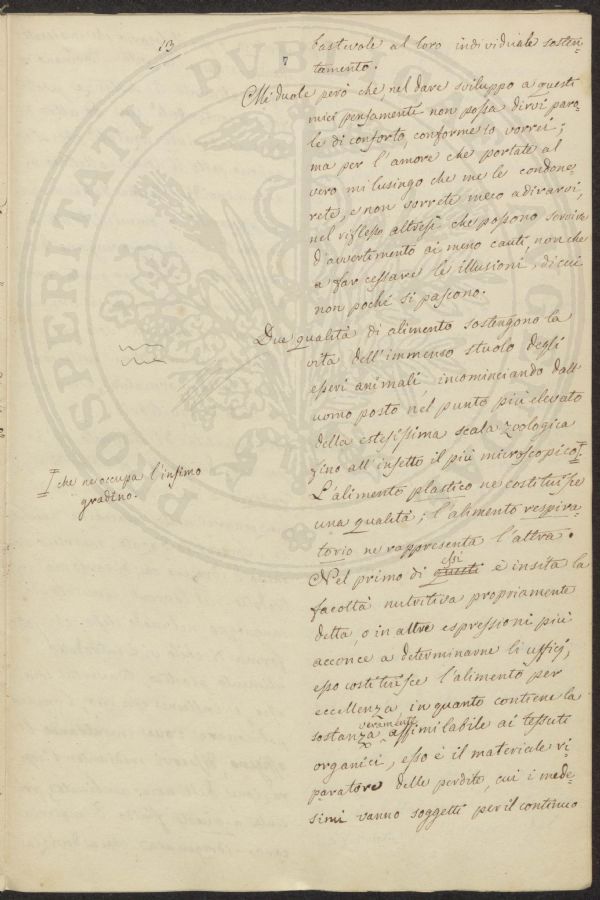 13
bastevole al loro individuale sosten-
tamento.
Mi duole però che, nel dare sviluppo a questi
miei pensamenti non possa dirvi paro-
le di conforto, conforme io vorrei;
ma per l'amore che portate al
vero mi lusingo che me le condone-
rete, e non vorrete meco adirarvi,
nel riflesso altresì che possono servire
d'avvertimento ai meno cauti, non che
a far cessare le illusioni, di cui
non pochi si pascono.
Due qualità di alimento sostengono la
vita dell'immenso stuolo degli
esseri animali incominciando dall'
uomo posto nel punto più elevato
della estesissima scala zoologica
fino all'insetto il più microscopico
I che ne occupa l'infimo
gradino.
L'alimento plastico ne costituisce
una qualità; l'alimento respira-
torio ne rappresenta l'altra.
Nel primo di questi essi è insita la
facoltà nutritiva propriamente
detta, o in altre espressioni più
acconce a determinarne li ufficj,
esso costituisce l'alimento per
eccellenza in quanto contiene la
sostanza veramente assimilabile ai tessuti
organici, esso è il materiale ri-
paratore delle perdite, cui i mede-
simi vanno soggetti per il continuo
PROSPERITATI PUBLICAE